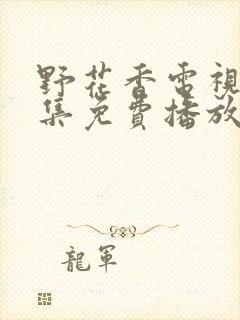 野花香電視
集免費播放
龍軍